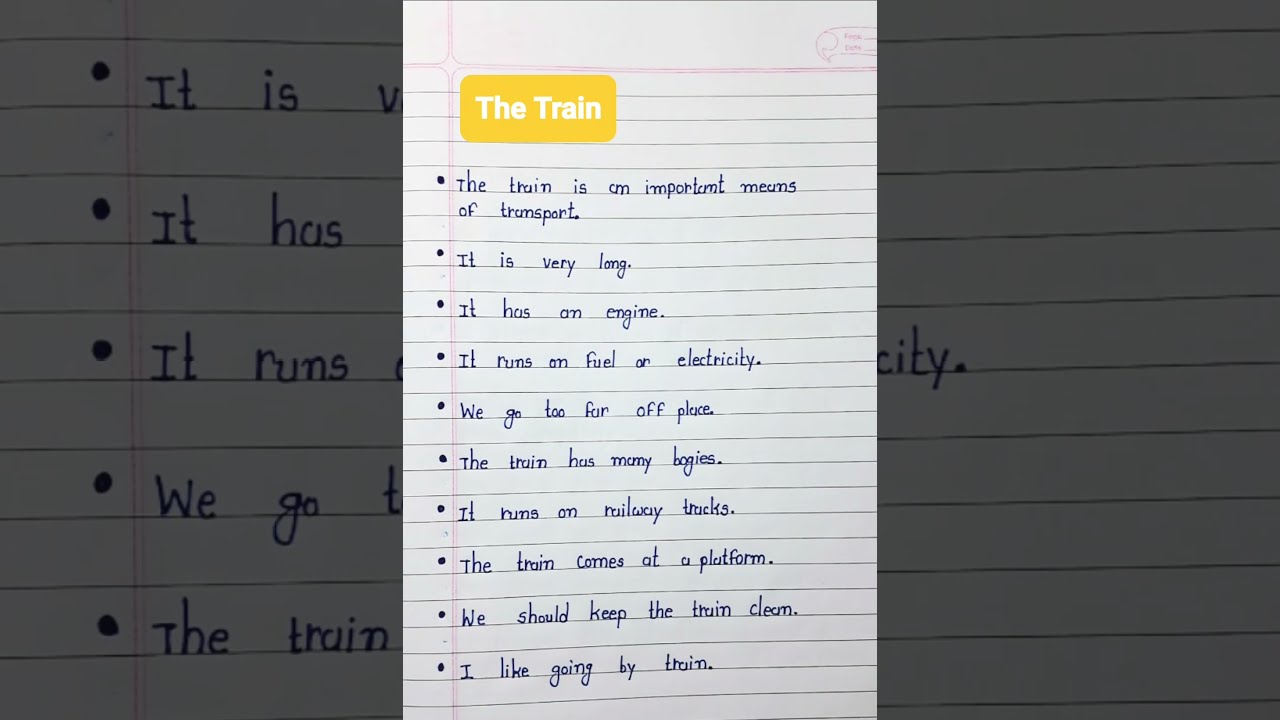 The Train
Page
Date
• The train is an important means
of transport.
• It is very long.
• It has an engine.
• It runs on fuel or electricity.
• We go too far off place.
• The train has many bogies.
• It runs on railway tracks.
• The train comes at a platform.
• We should keep the train clean.
• I like going by train.
• It is v
• It has
• It runs
city.
• We go t
• The train